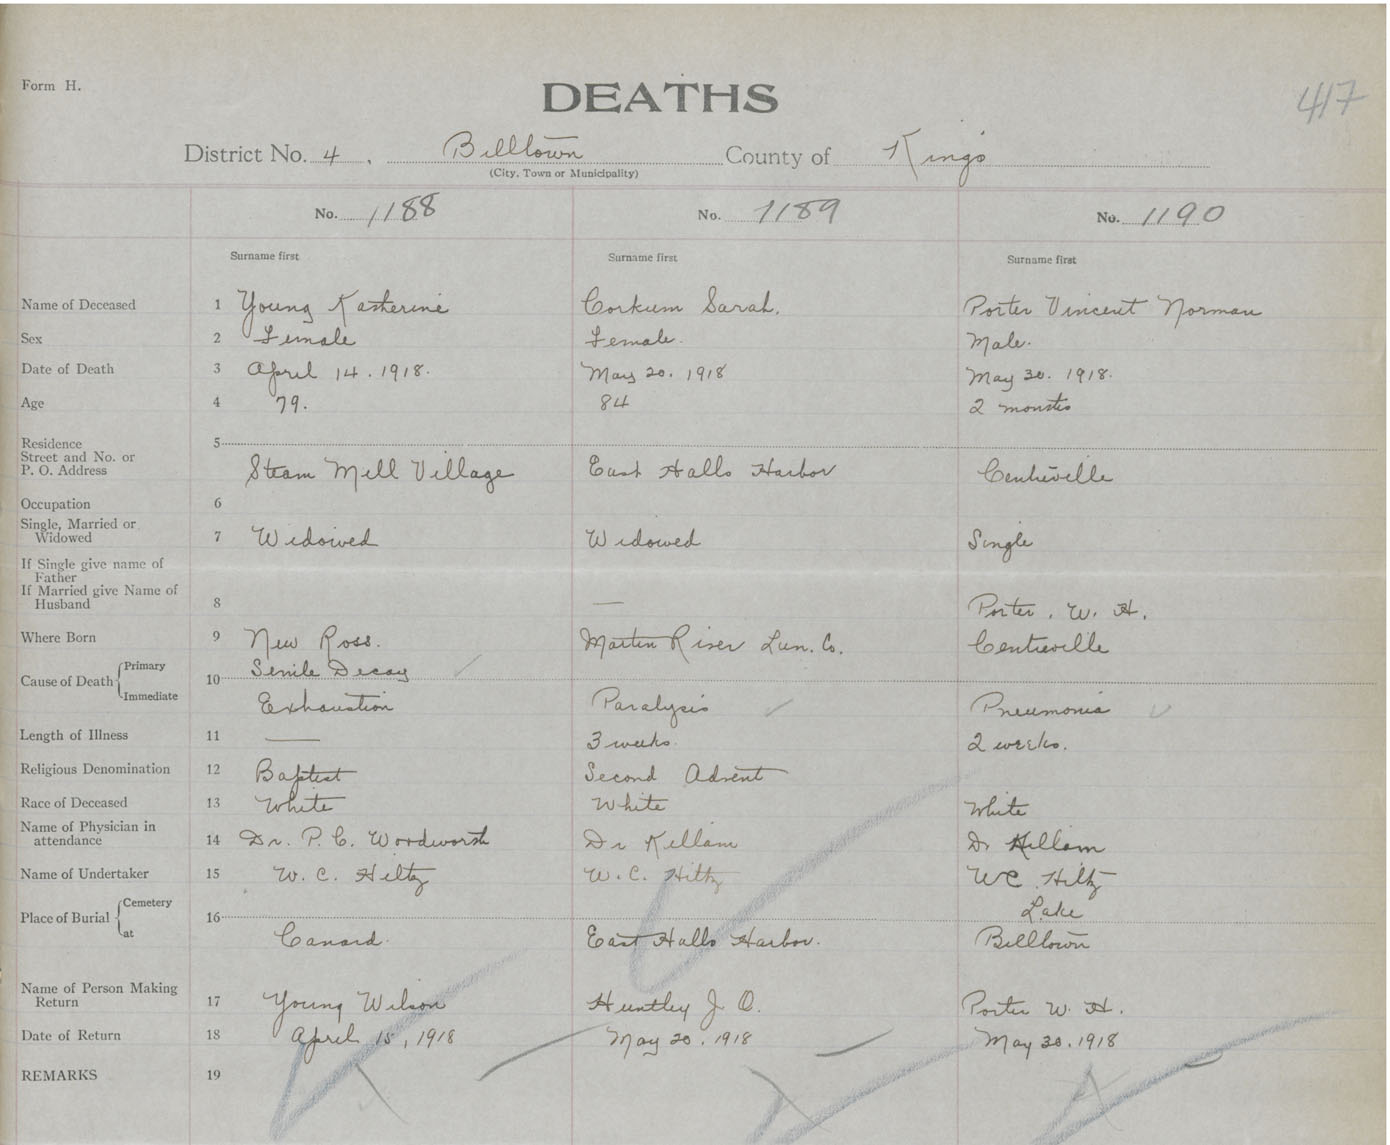 Form H.
DEATHS
417
District No. 4, Billtown County of Kings
(City, Town or Municipality)
No. 1188 No. 1189 No. 1190
Surname first Surname first Surname first
Name of Deceased 1 Young Katherine Corkum Sarah. Porter Vincent Norman
Sex 2 Female Female. Male.
Date of Death 3 April 14. 1918. May 20. 1918 May 30. 1918.
Age 4 79. 84 2 months
Residence 5
Street and No. or
P. O. Address Steam Mill Village East Halls Harbor Centreville
Occupation 6
Single, Married or
Widowed 7 Widowed Widowed Single
If Single give name of
Father
If Married give Name of
Husband 8 — Porter, W. H.
Where Born 9 New Ross. Martin River Lun. Co. Centreville
Cause of Death Primary 10 Senile Decay
Immediate Exhaustion Paralysis Pneumonia
Length of Illness 11 — 3 weeks. 2 weeks.
Religious Denomination 12 Baptist Second Advent
Race of Deceased 13 White White White
Name of Physician in
attendance 14 Dr. P. C. Woodworth Dr Killam Dr Killam
Name of Undertaker 15 W. C. Hiltz W. C. Hiltz WC Hiltz
Place of Burial Cemetery 16 Lake
at Canard. East Halls Harbor. Billtown
Name of Person Making
Return 17 Young Wilson Huntley J. O. Porter W. H.
Date of Return 18 April 15, 1918 May 20. 1918 May 30. 1918
REMARKS 19